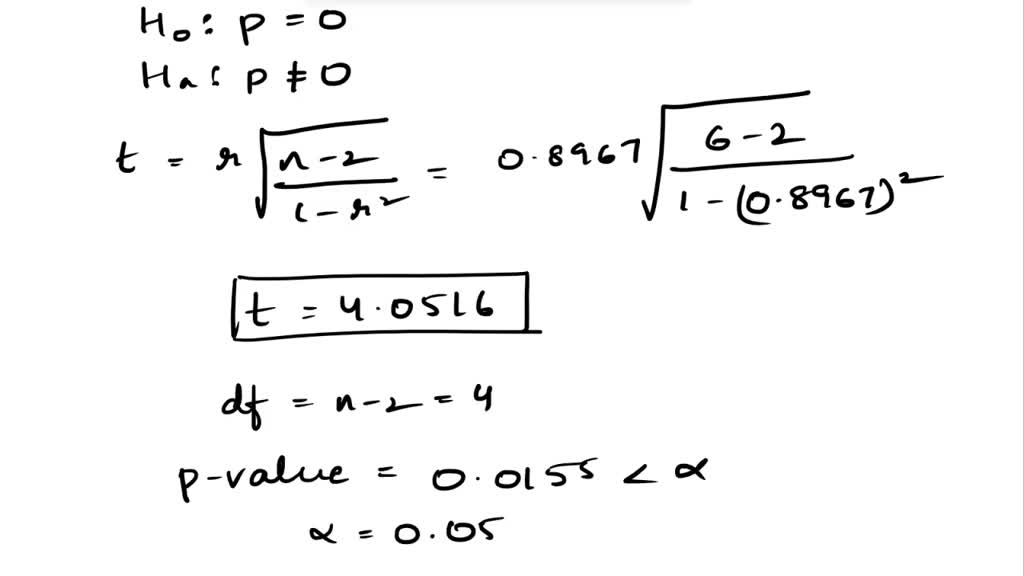 H₀: p = 0
Ha: p ≠ 0
t = r √((n-2)/(1-r²)) = 0.8967 √((6-2)/(1-(0.8967)²))
t = 4.0516
df = n-2 = 4
p-value = 0.0155 < α
α = 0.05